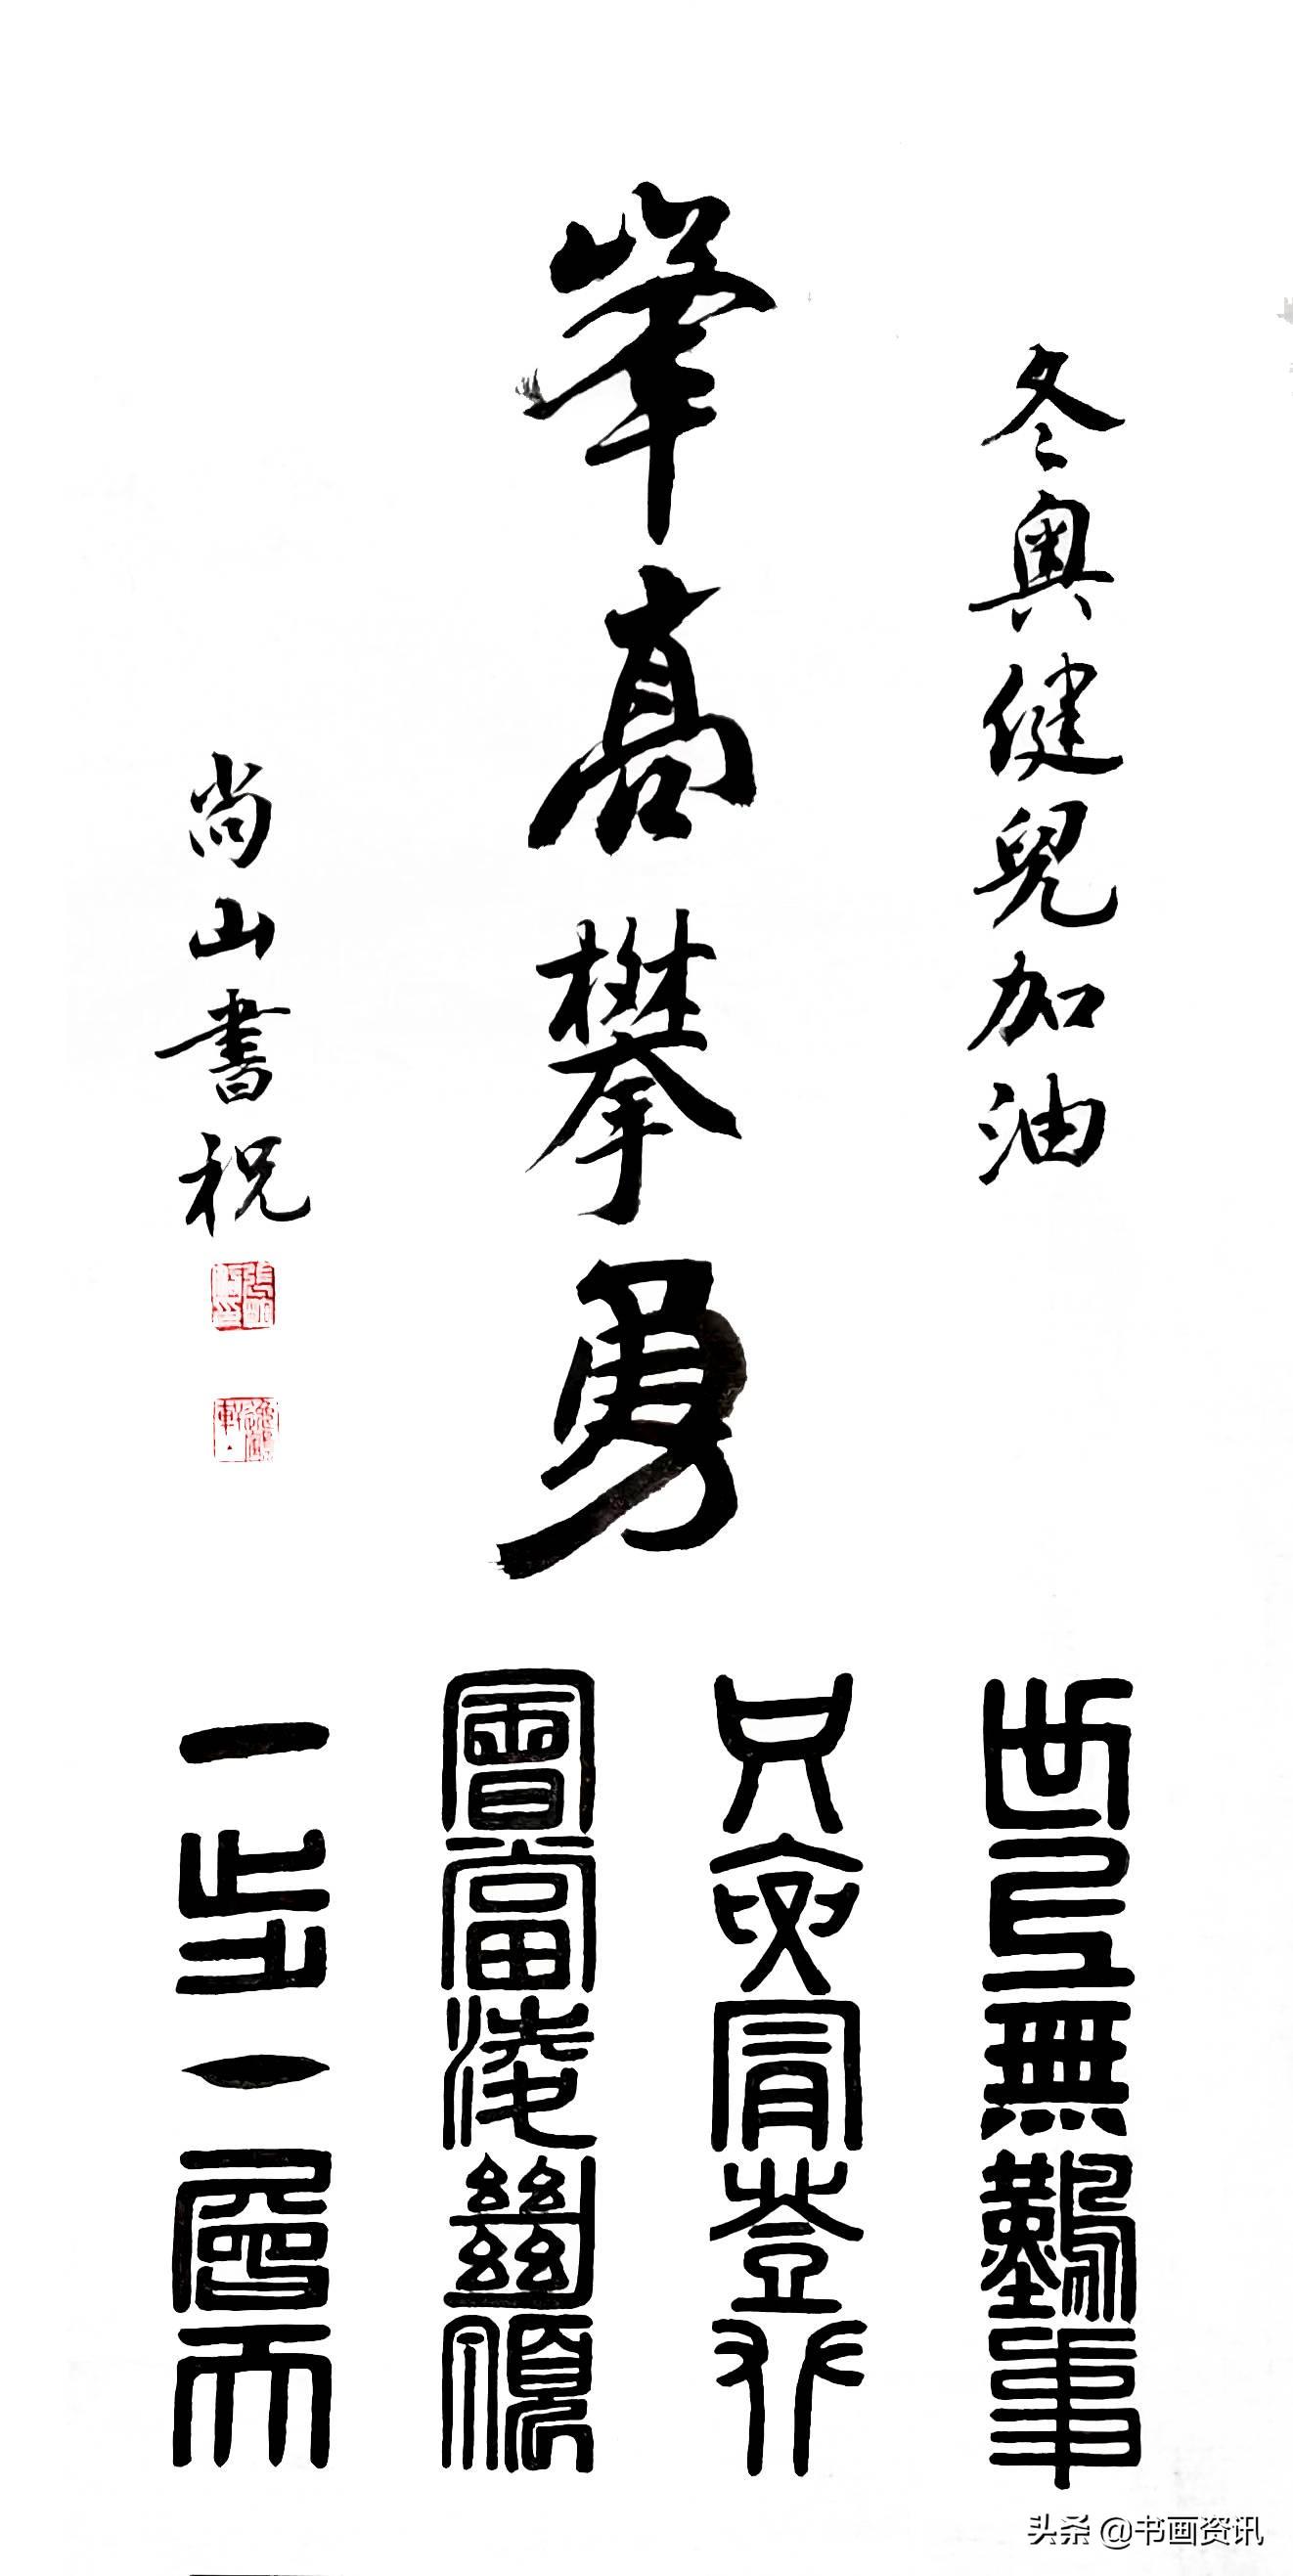 冬奥健兒加油
峯高攀勇
尚山書祝
世上無難事
只要肯登攀
會當淩絕頂
一步一層天
头条 @书画资讯